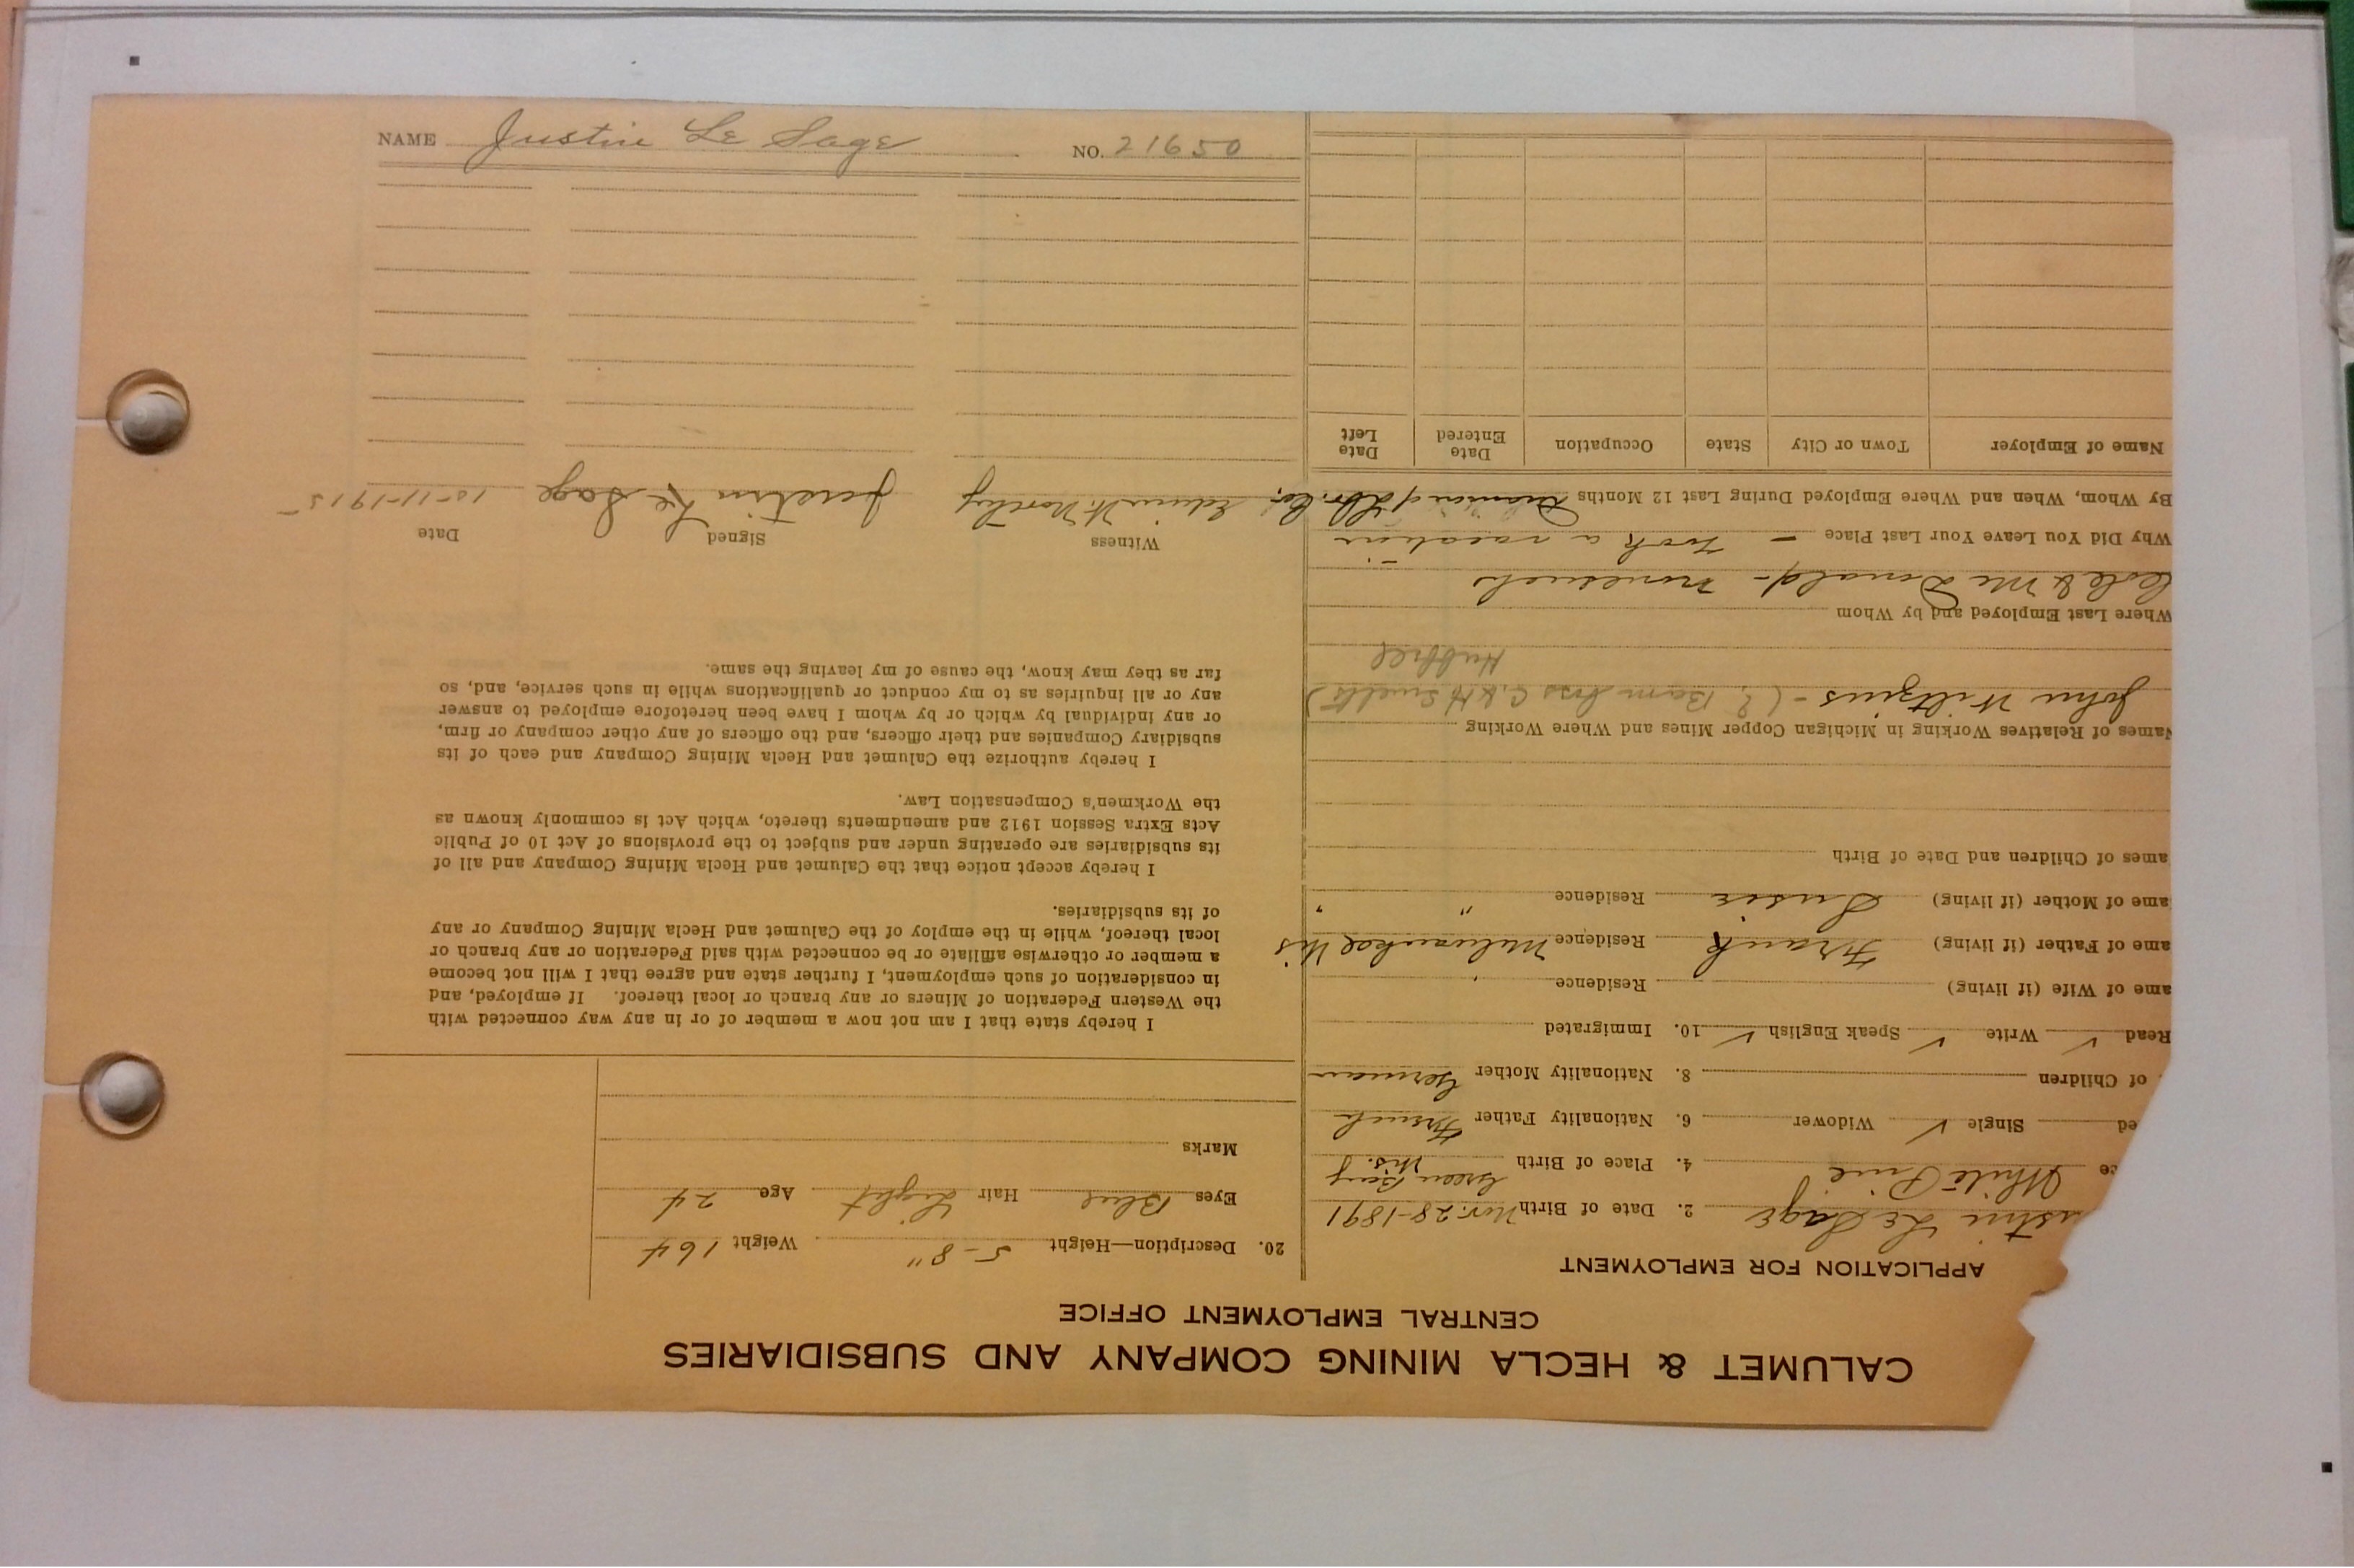 CALUMET & HECLA MINING COMPANY AND SUBSIDIARIES
CENTRAL EMPLOYMENT OFFICE
APPLICATION FOR EMPLOYMENT
ustin Le Sage 2. Date of Birth Nov. 28-1891
ce White Pine 4. Place of Birth Green Bay Wis.
ed Single ✓ Widower 6. Nationality Father French
of Children 8. Nationality Mother German
Read ✓ Write ✓ Speak English ✓ 10. Immigrated
ame of Wife (if living) Residence
ame of Father (if living) Frank Residence Milwaukee Wis
ame of Mother (if living) Susie Residence " "
ames of Children and Date of Birth
Names of Relatives Working in Michigan Copper Mines and Where Working
John Wiltzius - ( Barn boss C. & H. Smelts)
Hubbell
Where Last Employed and by Whom
& Mc Donald -
Why Did You Leave Your Last Place - Took a vacation
By Whom, When and Where Employed During Last 12 Months
Name of Employer Town or City State Occupation Date Entered Date Left
20. Description—Height 5-8" Weight 164
Eyes Blue Hair Light Age 24
Marks
I hereby state that I am not now a member of or in any way connected with
the Western Federation of Miners or any branch or local thereof. If employed, and
in consideration of such employment, I further state and agree that I will not become
a member or otherwise affiliate or be connected with said Federation or any branch or
local thereof, while in the employ of the Calumet and Hecla Mining Company or any
of its subsidiaries.
I hereby accept notice that the Calumet and Hecla Mining Company and all of
its subsidiaries are operating under and subject to the provisions of Act 10 of Public
Acts Extra Session 1912 and amendments thereto, which Act is commonly known as
the Workmen's Compensation Law.
I hereby authorize the Calumet and Hecla Mining Company and each of its
subsidiary Companies and their officers, and the officers of any other company or firm,
or any individual by which or by whom I have been heretofore employed to answer
any or all inquiries as to my conduct or qualifications while in such service, and, so
far as they may know, the cause of my leaving the same.
Witness Signed Date
Edwin W. Justin Le Sage 10-11-1915
NAME Justin Le Sage NO. 21650